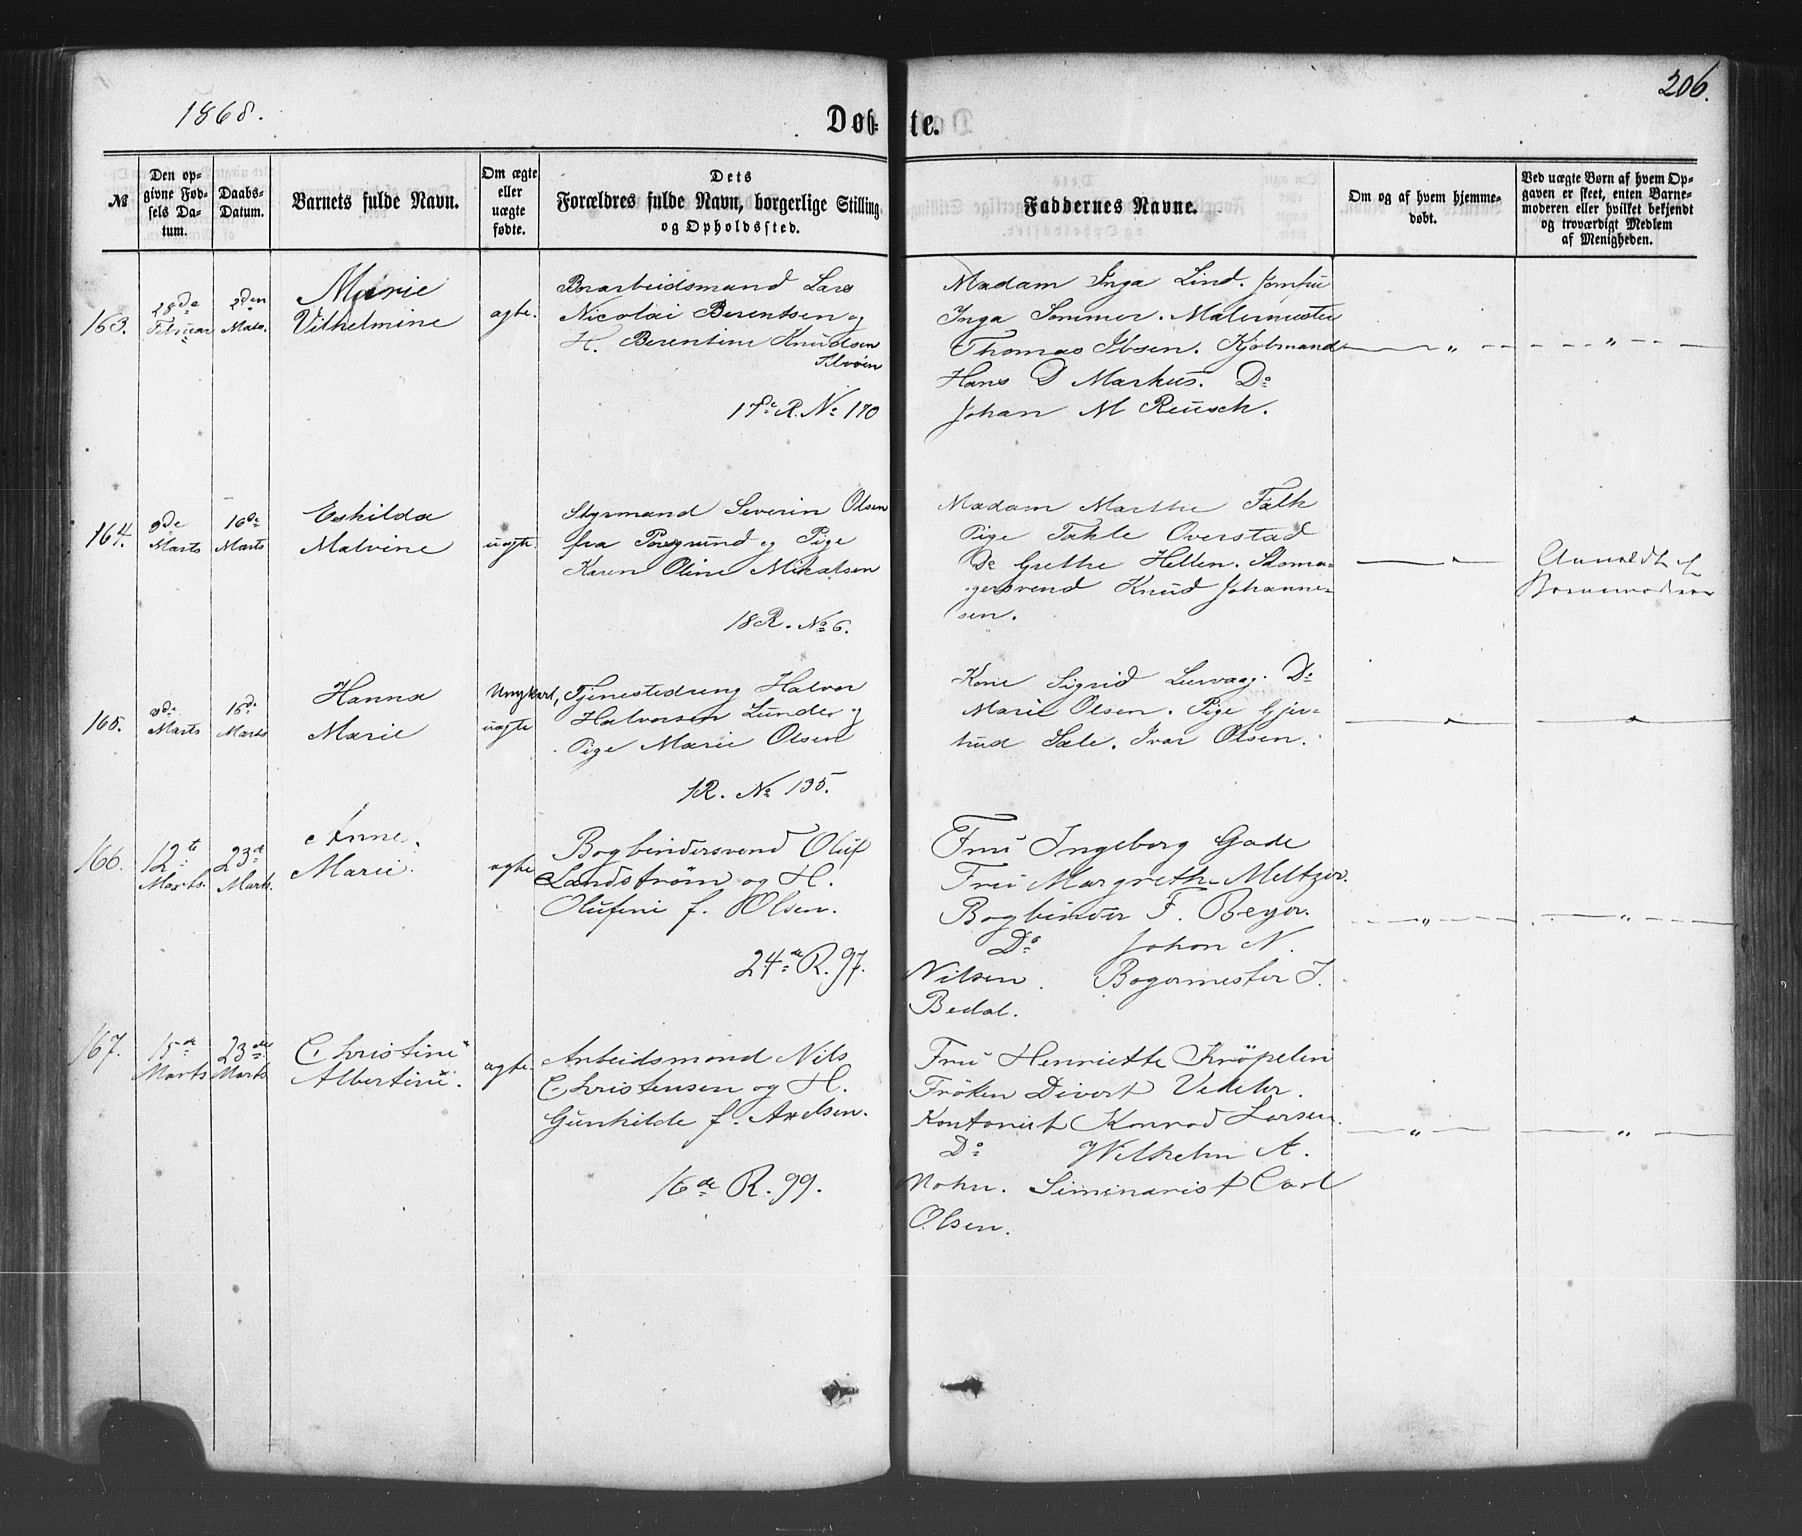 1868.
Døb- te.
206.
№
Den op-
givne Fød-
sels Da-
tum.
Daabs-
Datum.
Barnets fulde Navn.
Om ægte
eller
uægte
fødte.
Dets
Forældres fulde Navn, borgerlige Stilling
og Opholdssted.
Faddernes Navne.
Om og af hvem hjemme-
døbt.
Ved uægte Børn af hvem Op-
gaven er skeet, enten Barne-
moderen eller hvilket bekjendt
og troværdigt Medlem
af Menigheden.
163.
28de
Februar
2den
Marts.
Marie
Vilhelmine
ægte.
Borarbeidsmand Lars
Nicolai Berentsen og
H. Berentine Knudsen
17de R. No 170
Madam Inga Lind. Jomfru
Inga Sommer. Malermester
Thomas Ibsen. Kjøbmand
Hans D Markus. Do
Johan M Reusch.
164.
9de
Marts
16de
Marts
Eshilda
Malvine
uægte.
Styrmand Severin Olsen
fra Porsgrund og Pige
Karen Oline Mikalsen
18 R. No 6.
Madam Marthe Falk
Pige Takle Overstad
Do Grethe Hellen. Skoma-
gersvend Knud Johanne-
sen.
Anmeldt af
Barnemoderen
165.
8de
Marts
16de
Marts
Hanna
Marie
Ungkarl,
uægte
Tjenestedreng Halvor
Halvorsen Lunde og
Pige Marie Olsen
1 R. No 135.
Kone Sigrid Leirvaag. Do
Marie Olsen. Pige Gjer-
trud Sæle. Ivar Olsen.
166.
12te
Marts.
23d
Marts.
Anne
Marie.
ægte
Bogbindersvend Oluf
Landstrøm og H.
Olufine f. Olsen.
24de R. 97.
Fru Ingeborg Gade
Fru Margrethe Meltzer.
Bogbinder F. Beyer.
Do Johan N.
Nilsen. Bagermester J.
Bedal.
167.
15de
Marts
23de
Marts
Christine
Albertine.
ægte.
Arbeidsmand Nils
Christensen og H.
Gunhilde f. Axelsen.
16de R. 99.
Fru Henriette Krøpelin
Frøken Divert Vedeler.
Kontorist Konrad Larsen.
Do Wilhelm A.
Mohn. Siminarist Carl
Olsen.